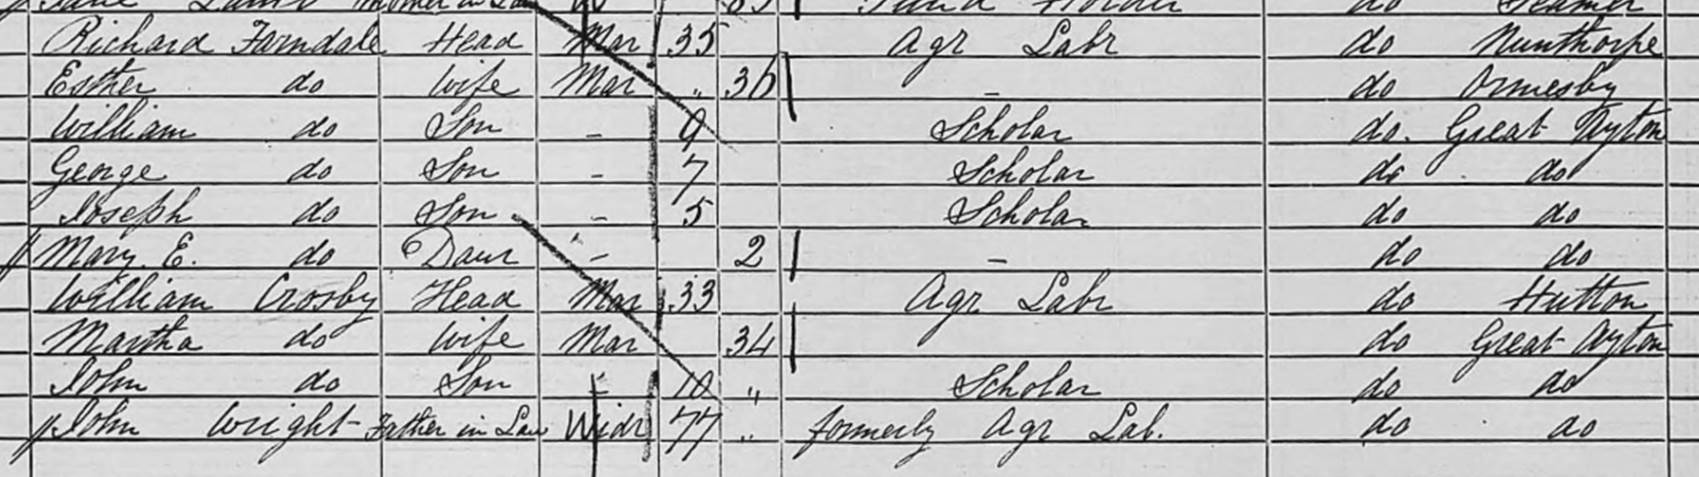 Mother in Law W 83 do Seamer
Richard Farndale Head Mar 35 Agr Labr do Nunthorpe
Esther do Wife Mar " 36 – do Ormesby
William do Son – 9 Scholar do. Great Ayton
George do Son – 7 Scholar do do
Joseph do Son – 5 Scholar do do
Mary. E. do Daur – 2 – do do
William Crosby Head Mar 33 Agr Labr do Hutton
Martha do Wife Mar 34 do Great Ayton
John do Son – 10 " Scholar do do
John Wright Father in Law Widr 77 " formerly Agr Lab. do do